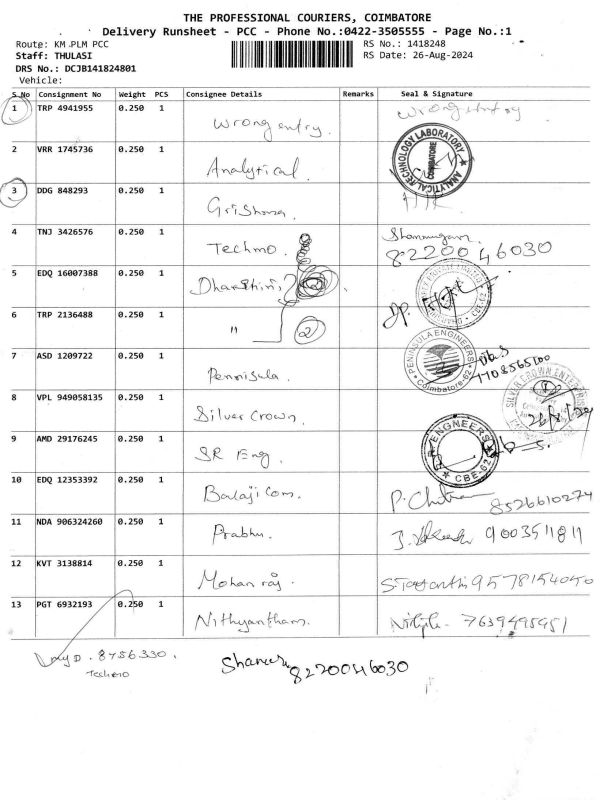 THE PROFESSIONAL COURIERS, COIMBATORE
Delivery Runsheet - PCC - Phone No.:0422-3505555 - Page No.:1
Route: KM PLM PCC RS No.: 1418248
Staff: THULASI RS Date: 26-Aug-2024
DRS No.: DCJB141824801
Vehicle:
S No Consignment No Weight PCS Consignee Details Remarks Seal & Signature
1 TRP 4941955 0.250 1 Wrong entry. Wrong entry
2 VRR 1745736 0.250 1 Analytical ANALYTICAL TECHNOLOGY LABORATORY COIMBATORE
3 DDG 848293 0.250 1 Grishma.
4 TNJ 3426576 0.250 1 Techmo. Shanmugam 82200 46030
5 EDQ 16007388 0.250 1 2
6 TRP 2136488 0.250 1 " 2
7 ASD 1209722 0.250 1 Pennisula. PENINSULA ENGINEERS Coimbatore-62 7708565100
8 VPL 949058135 0.250 1 Silver Crown. SILVER CROWN ENTERPRISES 26/8/2024
9 AMD 29176245 0.250 1 SR Eng. ENGNEERS CBE-62
10 EDQ 12353392 0.250 1 Balaji Com. 8526610274
11 NDA 906324260 0.250 1 Prabhu. 9003511811
12 KVT 3138814 0.250 1 Mohan raj. 9578154040
13 PGT 6932193 0.250 1 Nithyantham. 7639495951
8756330.
Techmo
8220046030